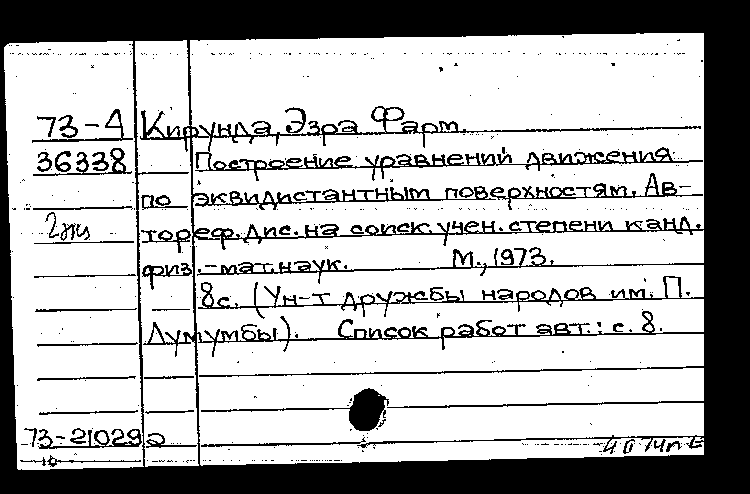 73-4 Кирунда, Эзра Фарт.
36338 Построение уравнений движения
по эквидистантным поверхностям. Ав-
тореф. дис. на соиск. учен. степени канд.
физ.-мат. наук. М., 1973.
8с. (Ун-т дружбы народов им. П.
Лумумбы). Список работ авт.: с. 8.
73-21029а